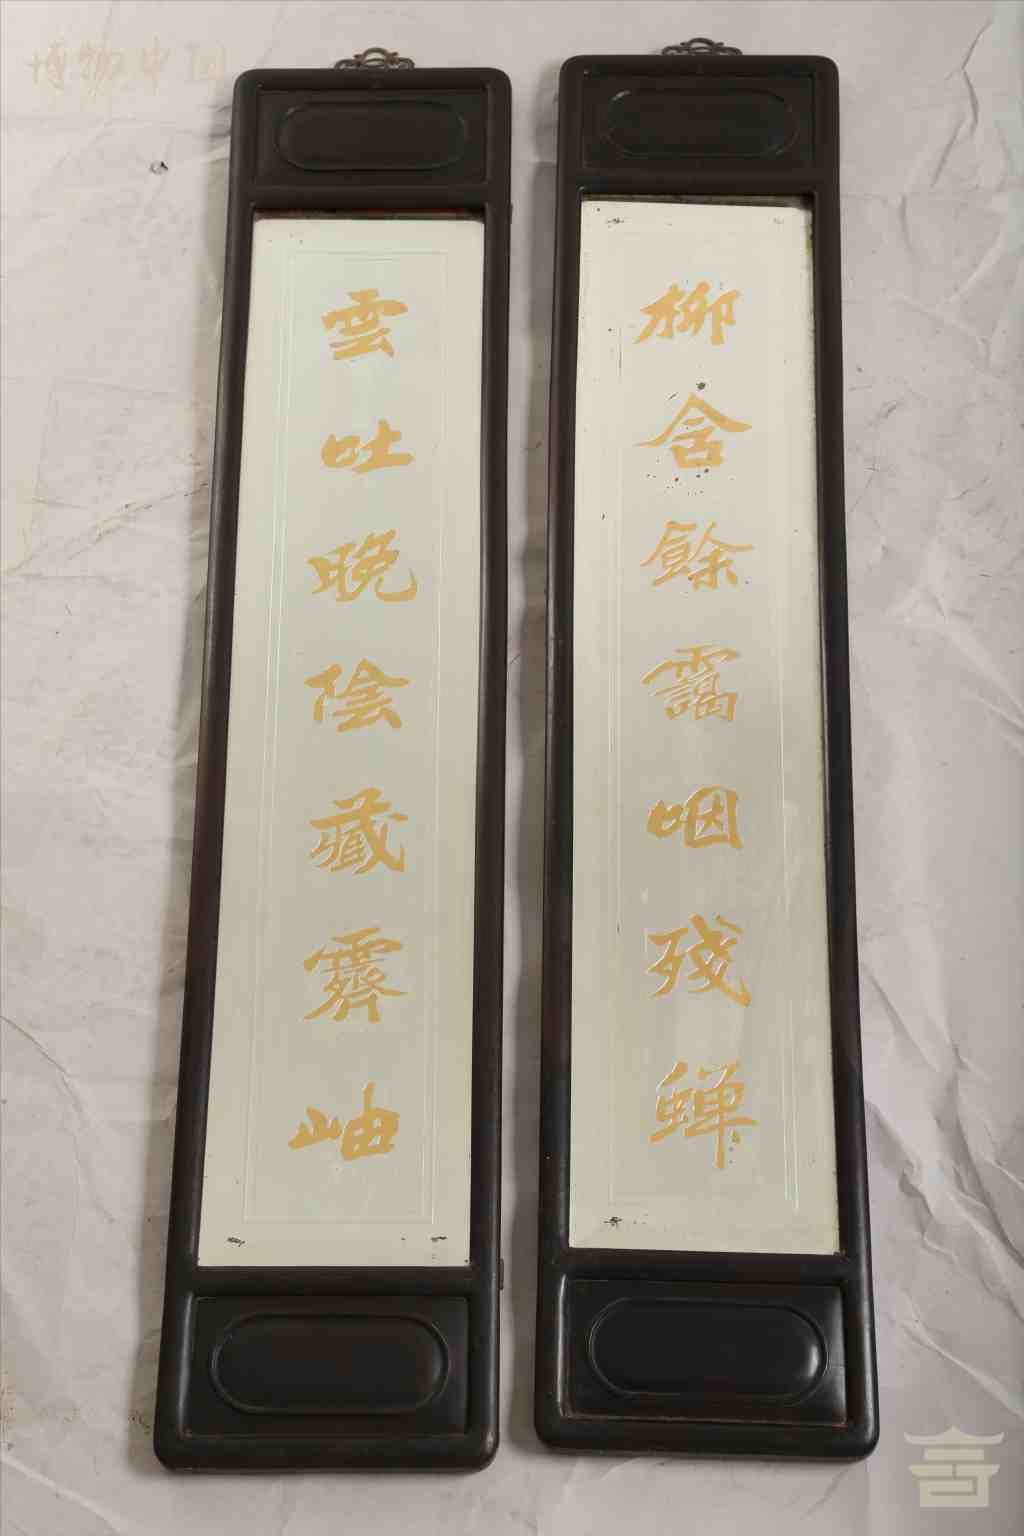 博物中国
柳含餘靄咽殘蟬
雲吐晚陰藏霽岫